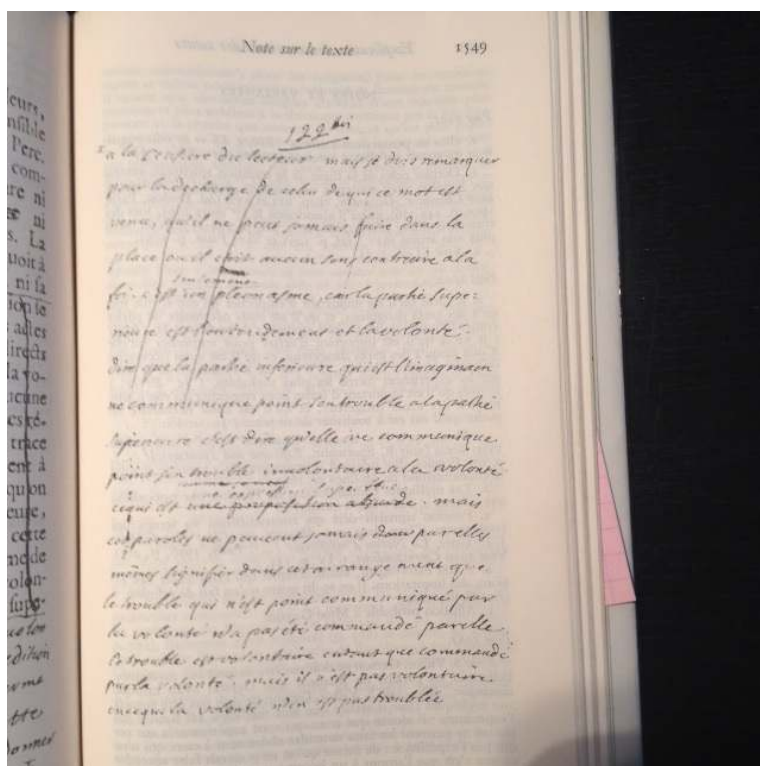 Note sur le texte 1549
122 bis
a la censure du lecteur mais je dois remarquer
pour la decharge de celui de qui ce mot est
venu, qu'il ne peut jamais faire dans la
place ou il etoit aucun sens contraire a la
seulement
foi. c'est un pleonasme, car la partie supe-
rieure est l'entendement et la volonté.
dire que la partie inferieure qui est l'imagination
ne communique point son trouble a la partie
superieure c'est dire qu'elle ne communique
point son trouble involontaire a la volonté
une expression imparfaite
ce qui est une proposition absurde. mais
ces paroles ne peuvent jamais par elles
mêmes signifier dans cet arrangement que
le trouble qui n'est point communiqué par
la volonté n'a pas été commandé par elle
le trouble est volontaire entant que commandé
par la volonté. mais il n'est pas volontaire
en ce que la volonté n'en est pas troublée
leurs,
nsible
Pere.
com-
re ni
ni
s. La
ni sa
directs
la vo-
ucune
trace
ent à
qu'on
cette
volon-
supe-
edition
donner